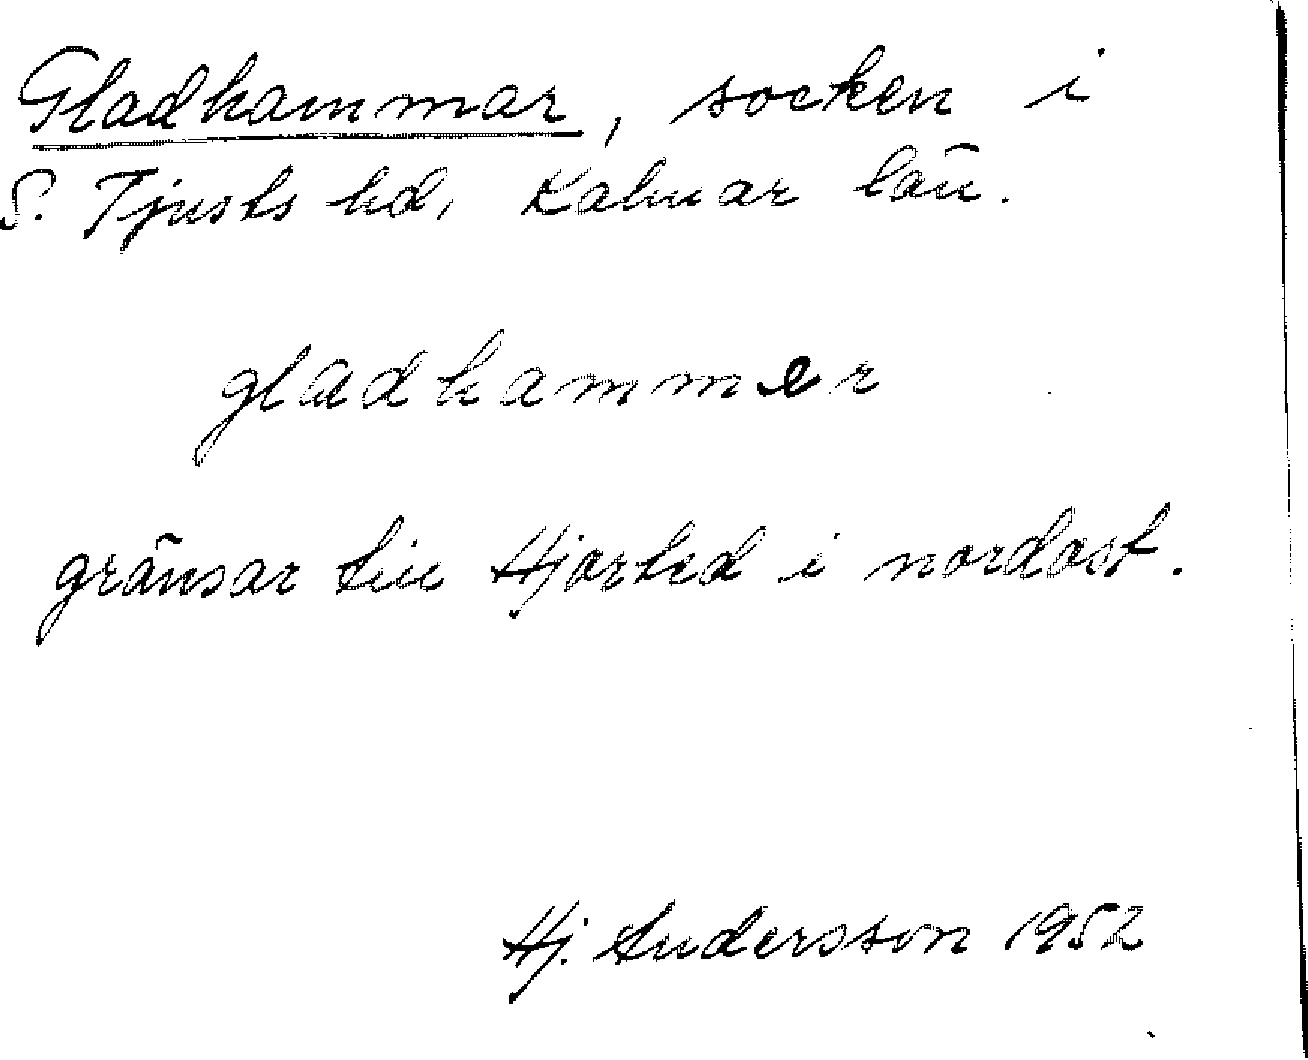 Gladhammar, socken i
S. Tjusts hd, Kalmar län.
gladhammer
gränsar till Hjorted i nordost.
Hj. Andersson 1952